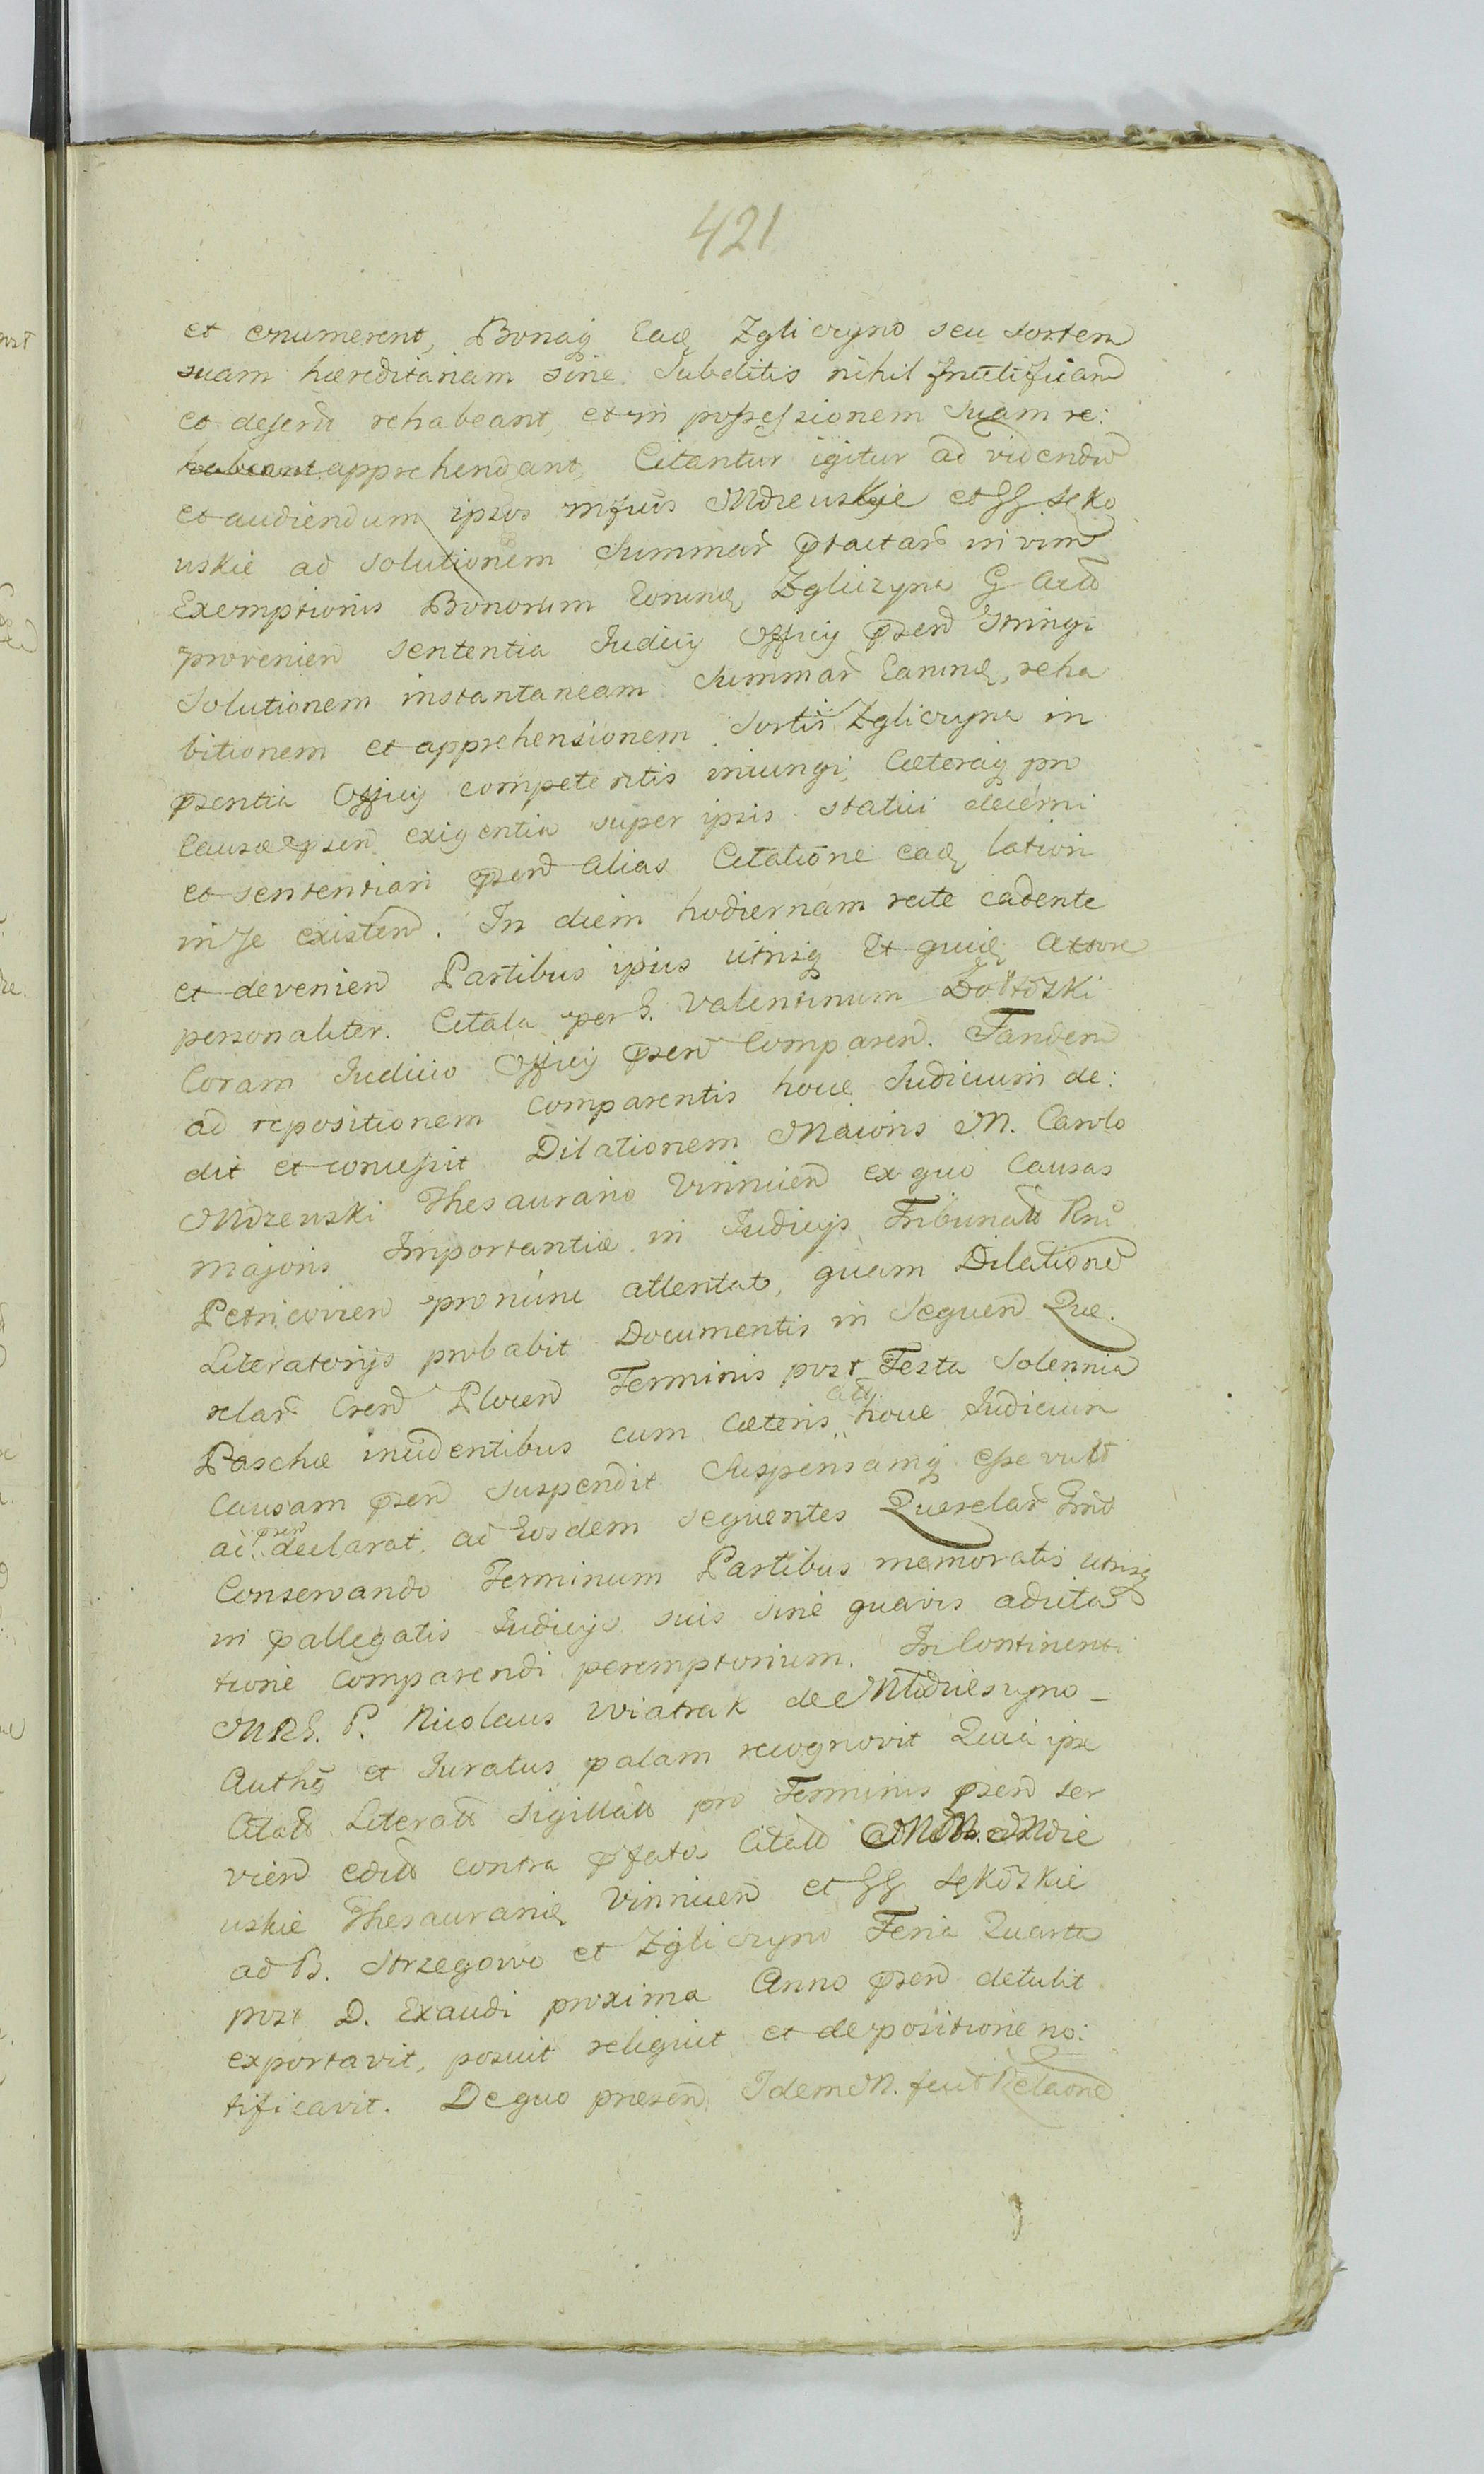 421
et enumerent, Bonaq Eadę Zgliczyno seu sortem
suam hæreditariam sine Subditis nihil fructifican̄
et desertt rehabeant, et in possessionem suam re:
habeant apprehendant, Citantur igitur ad videndū
et audiendum ipsos Mdzeuskie et GG Sęko
uskie ad solutionem Summar̄ in vim
Exemptionis Bonorum Eorundę Zgliczyna G
provenien̄ sententia Judicij Officij pn̄sen̄ stringi
Solutionem instantaneam Summar̄ Earundę, reha
bitionem et apprehensionem Sortis Zgliczyna in
pn̄sentia Officij competentis iniungi, Cæteraq pro
Causæ pn̄sen̄ exigentia super ipsis statui decerni
et sententiari pn̄sen̄ alias Citatione eadę latiori
in se existen̄. In diem hodiernam recte cadente
et devenien̄ Partibus ipsis utrisq Et quidę Actore
personaliter. Citata per G. Valentinum Dobrski
Coram Judicio Officij pn̄sen̄ Comparen̄. Tandem
ad repositionem comparentis hocce Judicium de:
dit et concessit Dilationem Maioris M. Carolo
Mdzeuski Thesaurario Vinnicen̄ ex quo Causas
majoris Importantiæ in Judicijs Tribunalt Rni
Petricovien̄ pronunc attentat, quam Dilationē
Literatorijs probabit Documentis in Sequen̄ Que.
relar̄ Cren̄ Plocen̄ Terminis post Festa Solennia
Paschæ incidentibus cum Cæteris hocce Judicium
Causam pn̄sen̄ suspendit Suspensamq esse vult
ac pn̄sen̄ declarat, ad Eosdem sequentes Querelar̄ Tmt
Conservando Terminum Partibus memoratis utrisq
in pallegatis Judicijs suis sine quavis adcita
tione comparendi peremptorium. In Continenti
P. Nicolaus Wiatrak de
Authę et Juratus palam recognovit Quia ipse
Citatt Literatt Sigillatt pro Terminis pn̄sen̄ ser
vien̄ editt contra pfatos Citatt MM. Mdze
uskie Thesaurarię Vinnicen̄ et GG Sękoskie
ad B. Strzegowo et Zgliczyno Feria Quarta
post D. Exaudi proxima Anno pn̄sen̄ detulit
exportavit, posuit reliquit et de positione no:
tificavit. De quo præsen̄ Idem M. fecit Relaonē